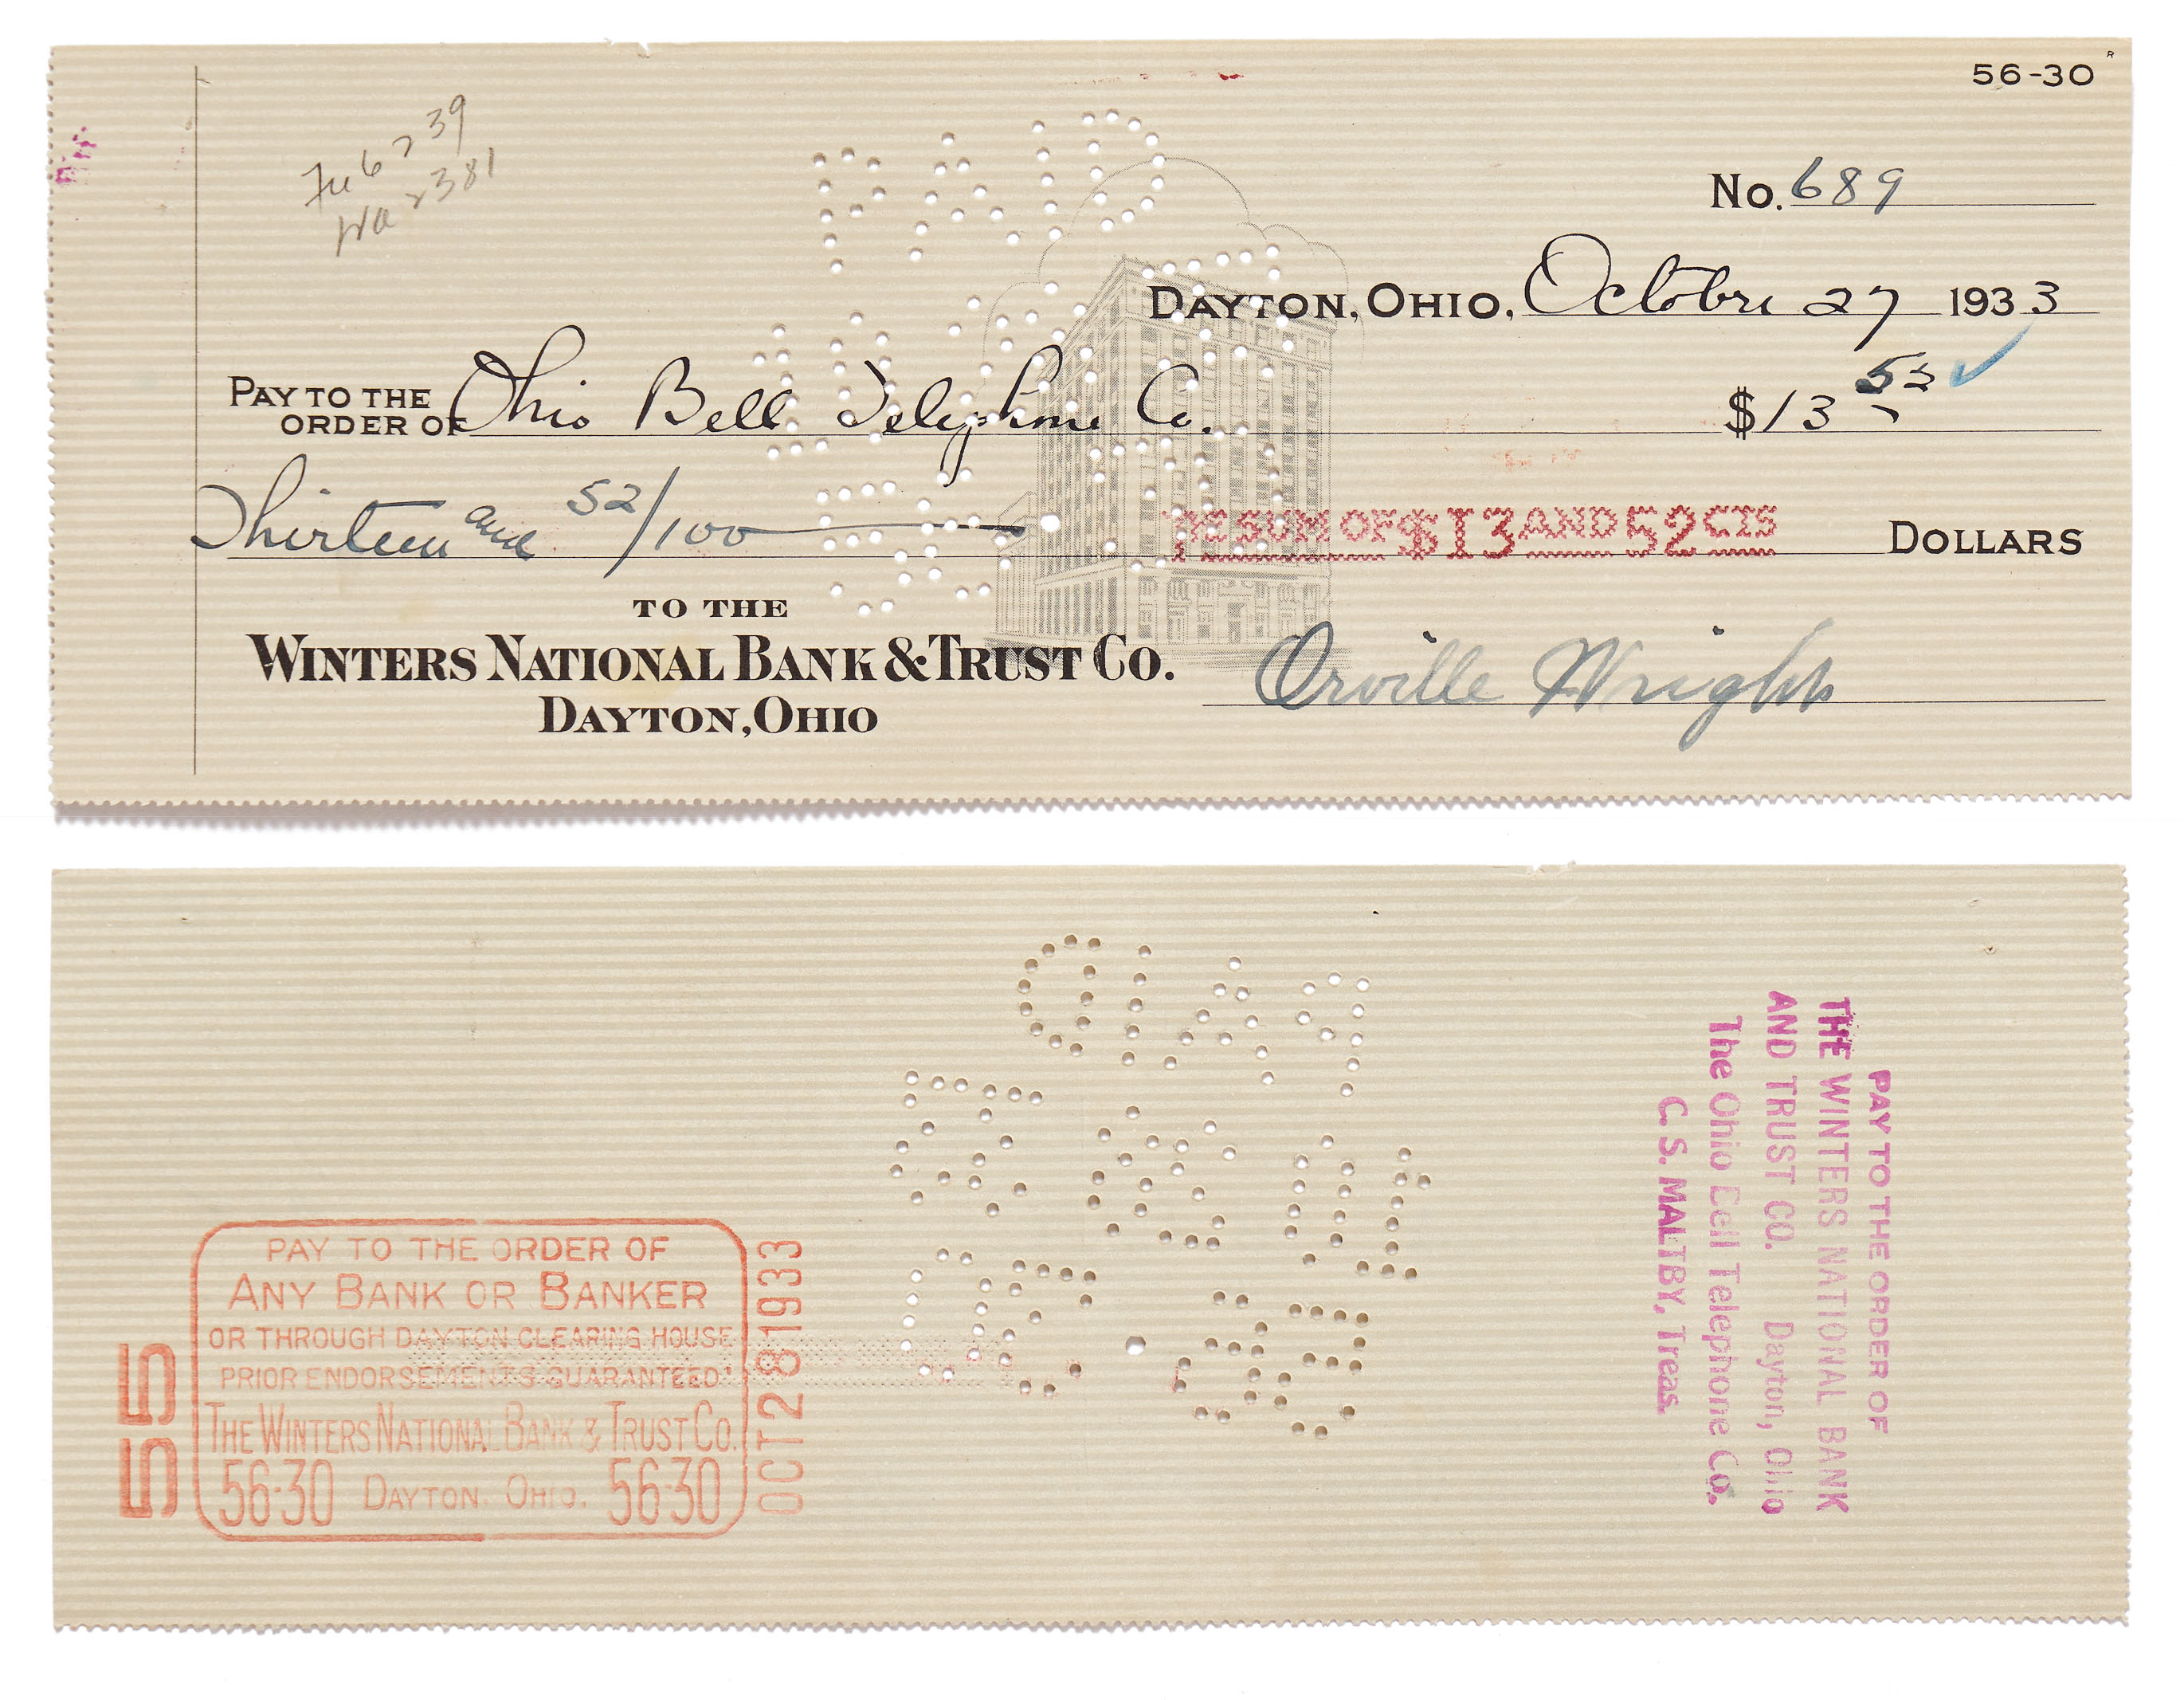 56-30
R
Fu 6739
Wa 2381
No. 689
DAYTON, OHIO, October 27 1933
PAY TO THE
ORDER OF Ohio Bell Telephone Co. $13 52
Thirteen and 52/100 THE SUM OF $13 AND 52 CTS DOLLARS
TO THE
WINTERS NATIONAL BANK & TRUST CO.
DAYTON, OHIO
Orville Wright
PAID
PAY TO THE ORDER OF
ANY BANK OR BANKER
OR THROUGH DAYTON CLEARING HOUSE
PRIOR ENDORSEMENTS GUARANTEED
THE WINTERS NATIONAL BANK & TRUST CO.
56-30 DAYTON, OHIO. 56-30
55
OCT 28 1933
PAY TO THE ORDER OF
THE WINTERS NATIONAL BANK
AND TRUST CO. Dayton, Ohio
The Ohio Bell Telephone Co.
C. S. MALTBY, Treas.